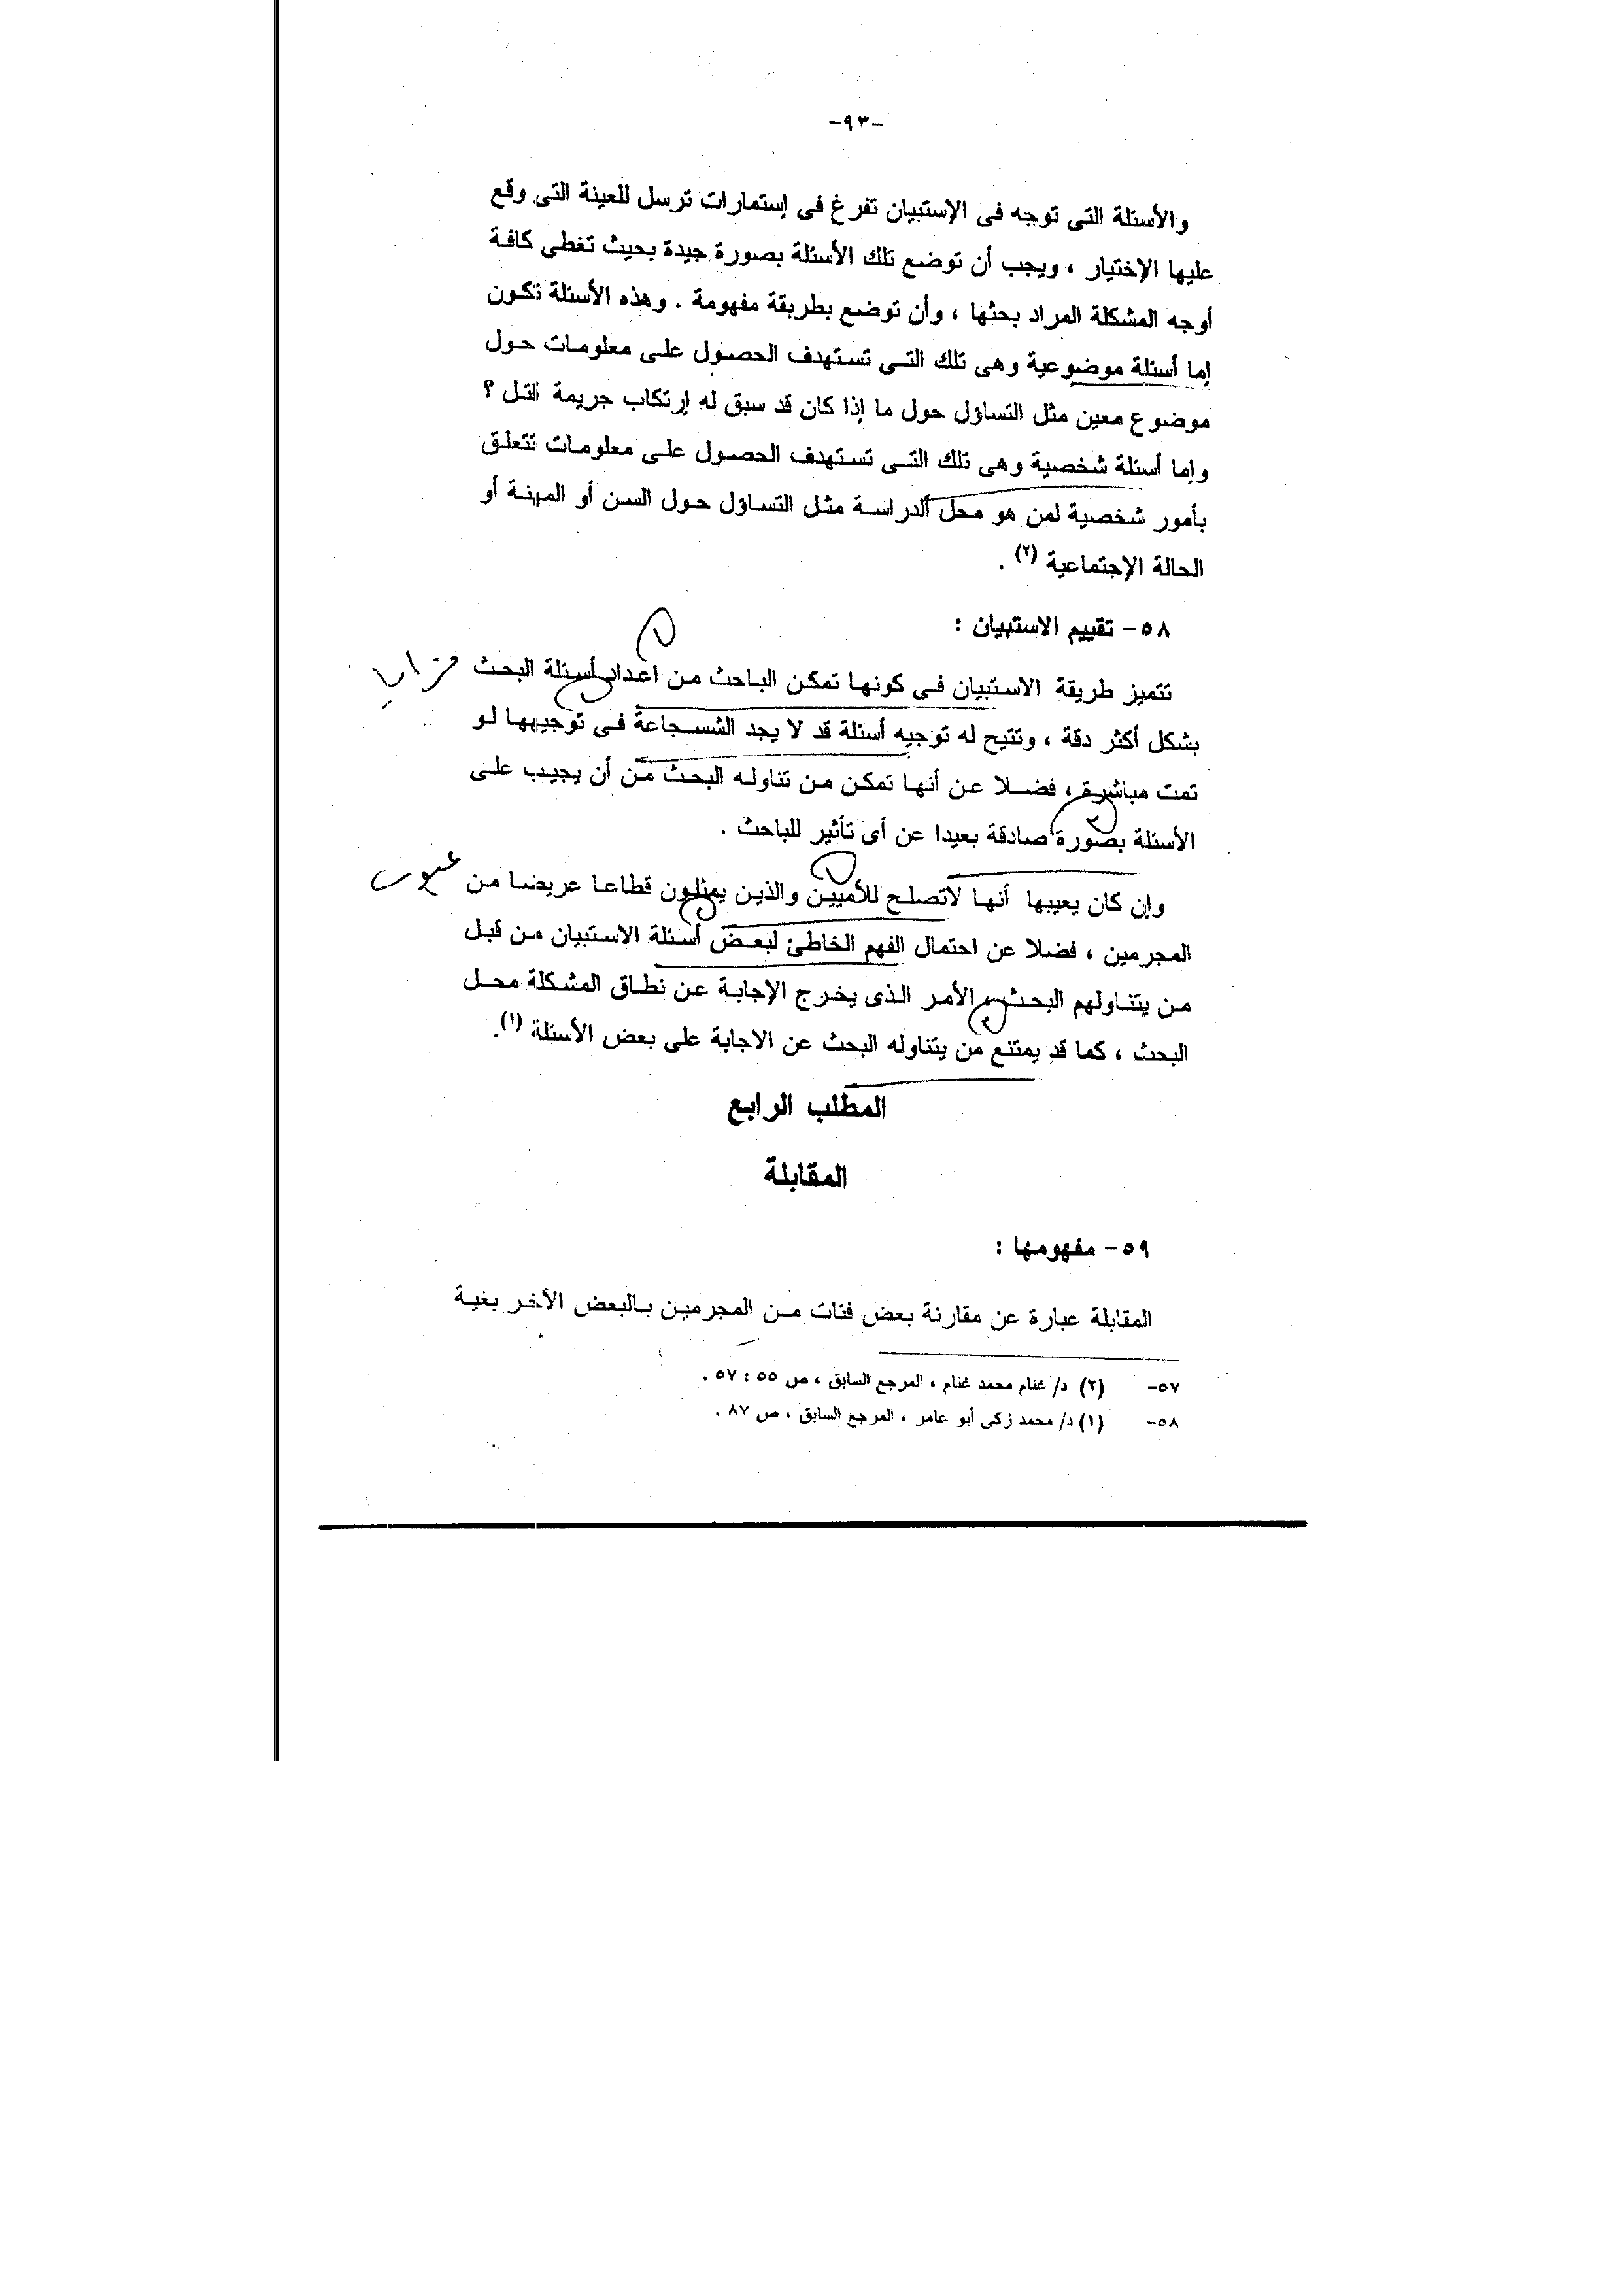 -٩٣-
والأسئلة التى توجه فى الإستبيان تفرغ فى إستمارات ترسل للعينة التى وقع
عليها الإختيار ، ويجب أن توضع تلك الأسئلة بصورة جيدة بحيث تغطى كافة
أوجه المشكلة المراد بحثها ، وأن توضع بطريقة مفهومة . وهذه الأسئلة تكون
إما أسئلة موضوعية وهى تلك التى تستهدف الحصول على معلومات حول
موضوع معين مثل التساؤل حول ما إذا كان قد سبق له إرتكاب جريمة القتل ؟
وإما أسئلة شخصية وهى تلك التى تستهدف الحصول على معلومات تتعلق
بأمور شخصية لمن هو محل الدراسة مثل التساؤل حول السن أو المهنة أو
الحالة الإجتماعية (٢) .
٥٨- تقييم الاستبيان :
١
تتميز طريقة الاستبيان فى كونها تمكن الباحث من اعداد أسئلة البحث
مزايا
بشكل أكثر دقة ، وتتيح له توجيه أسئلة قد لا يجد الشجاعة فى توجيهها لو
تمت مباشرة ، فضلا عن أنها تمكن من تناوله البحث من أن يجيب على
الأسئلة بصورة صادقة بعيدا عن أى تأثير للباحث .
وإن كان يعيبها أنها لاتصلح للأميين والذين يمثلون قطاعا عريضا من
عيوب
المجرمين ، فضلا عن احتمال الفهم الخاطئ لبعض أسئلة الاستبيان من قبل
من يتناولهم البحث ، الأمر الذى يخرج الإجابة عن نطاق المشكلة محل
البحث ، كما قد يمتنع من يتناوله البحث عن الاجابة على بعض الأسئلة (١).
المطلب الرابع
المقابلة
٥٩- مفهومها :
المقابلة عبارة عن مقارنة بعض فئات من المجرمين بالبعض الأخر بغية
٥٧- (٢) د/ غنام محمد غنام ، المرجع السابق ، ص ٥٥ : ٥٧ .
٥٨- (١) د/ محمد زكى أبو عامر ، المرجع السابق ، ص ٨٧ .